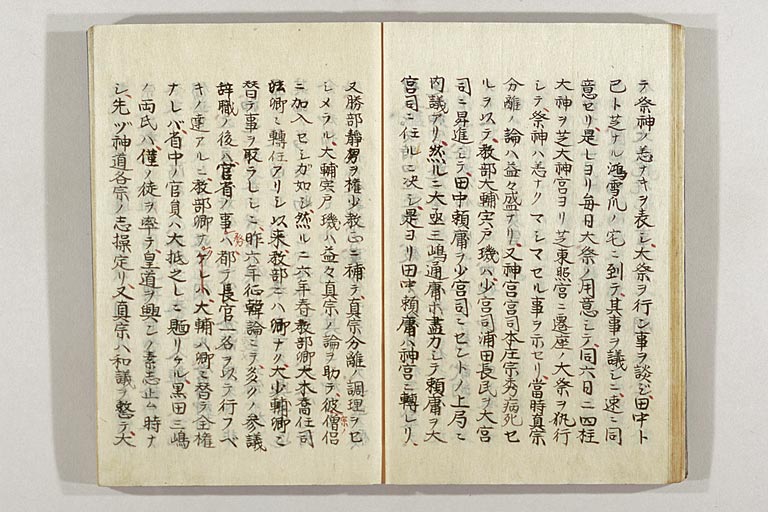 テ祭神ノ恙ナキヲ表シ大祭ヲ行ン事ヲ談ジ田中ト
己ト芝ナル鴻雪爪ノ宅ニ到テ其事ヲ議シ速ニ同
意セリ是レヨリ毎日大祭ノ用意シテ同六日ニ四柱
大神ヲ芝大神宮ヨリ芝東照宮ニ遷座ノ大祭ヲ執行
シテ祭神ハ恙ナクマシマセル事ヲ示セリ當時真宗
分離ノ論ハ益々盛ナリ又神宮宮司本庄宗秀病死セ
ルヲ以テ教部大輔宍戸璣ハ少宮司浦田長民ヲ大宮
司ニ昇進シテ田中頼庸ヲ少宮司ニセントノ上局ニ
内議アリ然ルニ大丞三嶋通庸ホ盡力シテ頼庸ヲ大
宮司ニ任ルニ決シ是ヨリ田中頼庸ハ神宮ニ轉レリ
又勝部静男ヲ権少教正ニ補テ真宗分離ノ調理ヲセ
シメラル大輔宍戸璣ハ益々真宗ノ論ヲ助テ彼宗ノ僧侶
ニ加入セシガ如シ然ルニ六年春教部卿大木喬任司
法卿ニ轉任アリシ以来教部ニハ卿ナク大少輔卿ニ
替テ事ヲ取ラレシニ昨六年征韓論ニテ多クノ参議
辞職ノ後ハ官省ノ事ハ都テ長官一名ヲ以テ行フベ
キノ達アルニ教部卿ナケレバ大輔ハ卿ニ替テ全権
ナレバ省中ノ官員ハ大抵之レニ
ノ両氏ハ僅ノ徒ヲ率テ皇道ヲ興シノ素志止ム時ナ
シ先ヅ神道各宗ノ志操定リ又真宗ハ和議ヲ整テ大